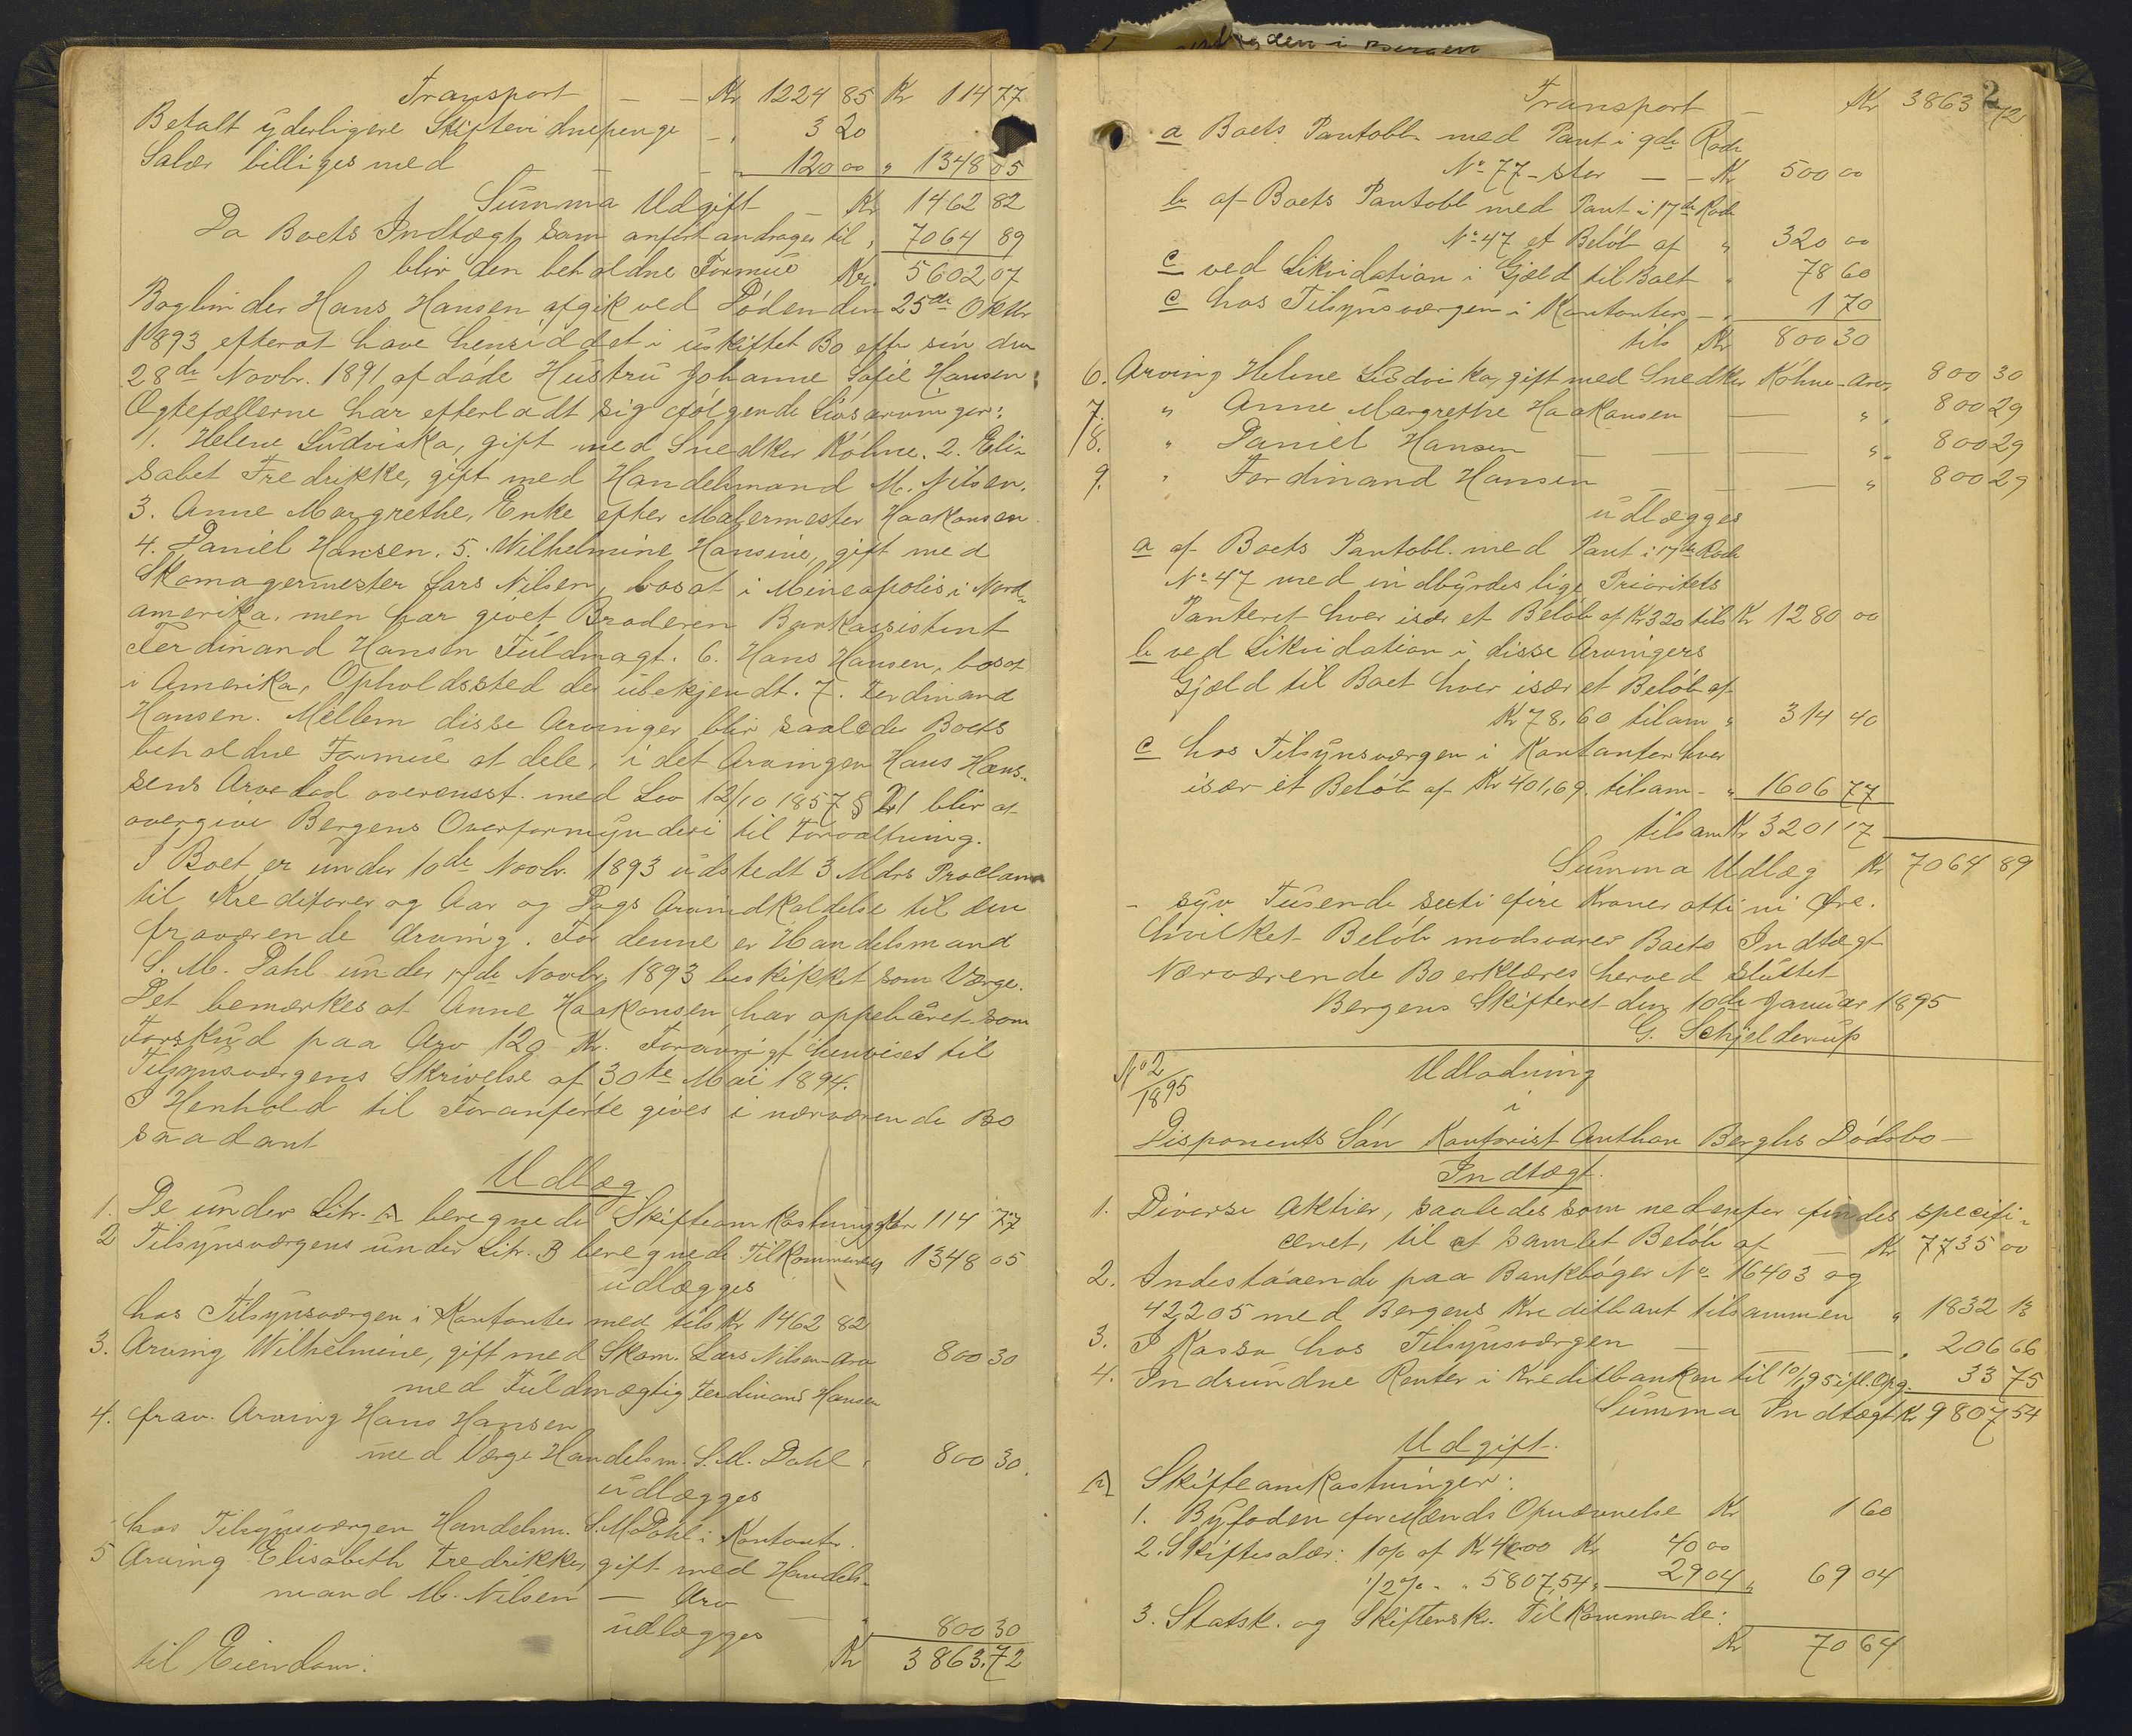 Transport — — Kr 1224 85 Kr 114 77
Betalt yderligere Skiftevidnepenge — " 3 20
Salær billiges med — — " 120 00 " 1348 05
Summa Udgift — Kr 1462 82
Da Boets Indtægt som anført andrager til " 7064 89
blir den beholdne Formue Kr. 5602 07
Bogbinder Hans Hansen afgik ved Døden den 25de Oktbr
1893 efterat have hensiddet i uskiftet Bo efter sin den
28de Novbr. 1891 afdøde Hustru Johanne Sofie Hansen.
Ægtefællerne har efterladt sig følgende Livsarvinger:
1. Helene Ludviska, gift med Snedker Köhne. 2. Eli-
sabet Fredrikke, gift med Handelsmand M. Nilsen.
3. Anne Margrethe, Enke efter Malermester Haakonsen
4. Daniel Hansen. 5. Wilhelmine Hansine, gift med
Skomagermester Lars Nilsen, bosat i Mineapolis i Nord-
amerika, men har givet Broderen Bankassistent
Ferdinand Hansen Fuldmagt. 6. Hans Hansen, bosat
i Amerika, Opholdssted der ubekjendt. 7. Ferdinand
Hansen. Mellem disse Arvinger blir saaledes Boets
beholdne Formue at dele, idet Arvingen Hans Han-
sens Arvelod overensst. med Lov 12/10 1857 § 21 blir at
overgive Bergens Overformynderi til Forvaltning.
I Boet er under 10de Novbr. 1893 udstedt 3 Mdrs Proclama
til Kreditorer og Aar og Dags Arveindkaldelse til den
fraværende Arving. For denne er Handelsmand
S. M. Dahl under 17de Novbr. 1893 beskikket som Værge.
Det bemærkes at Anne Haakonsen har oppebåret som
Forskud paa Arv 120 Kr. Forøvrigt henvises til
Tilsynsværgens Skrivelse af 30te Mai 1894.
I Henhold til Foranførte gives i nærværende Bo
saadant
Udlæg
1. De under Litr. A beregnede Skifteomkostninger Kr 114 77
2 Tilsynsværgens under Litr. B beregnede Tilkommende " 1348 05
udlægges
hos Tilsynsværgen i Kontanter med tils Kr 1462 82
3. Arving Wilhelmine, gift med Skom. Lars Nilsen - Arv 800 30
med Fuldmægtig Ferdinand Hansen
4. frav. Arving Hans Hansen
med Værge Handelsm. S. M. Dahl " 800 30.
udlægges
hos Tilsynsværgen Handelsm. S. M. Dahl i Kontanter.
5 Arving Elisabeth Fredrikke, gift med Handels-
mand M. Nilsen — Arv — " 800 30
udlægges
til Eiendom: Kr 3863.72
2
Transport — Kr 3863 72
a Boets Pantobl. med Pant i 9de Rode
No 77 - stor — — Kr 500 00
b af Boets Pantobl med Pant i 17de Rode
No 47 et Beløb af " 320 00
c ved Likvidation i Gjæld til Boet " 78 60
c hos Tilsynsværgen i Kontanter — " 1 70
tils Kr 800 30
6. Arving Helene Ludvika, gift med Snedker Köhne - Arv " 800 30
7. " Anne Margrethe Haakonsen — " " 800 29
8. " Daniel Hansen — — — " " 800 29
9. " Ferdinand Hansen — — — " 800 29
udlægges
a af Boets Pantobl. med Pant i 17de Rode
No 47 med indbyrdes lige Prioritets
Panteret hver især et Beløb af Kr 320 tils Kr 1280 00
b ved Likvidation i disse Arvingers
Gjæld til Boet hver især et Beløb af
Kr 78,60 tilsam " 314 40
c hos Tilsynsværgen i Kontanter hver
især et Beløb af Kr 401,69. tilsam - " 1606 77
tilsam Kr 3201 17
Summa Udlæg Kr 7064 89
- syv Tusende seksti fire Kroner otti ni Øre.
hvilket Beløb modsvarer Boets Indtægt
Nærværende Bo erklæres herved sluttet
Bergens Skifteret den 10de Januar 1895
G. Schjelderup
No 2
1895
Udlodning
i
Disponents Søn Kontorist Anthon Berghs Dødsbo —
Indtægt.
1. Diverse Aktier, saaledes som nedenfor findes specifi-
ceret, til et samlet Beløb af — Kr 7735 00
2. Indestaaende paa Bankbøger No 16403 og
42205 med Bergens Kreditbank tilsammen " 1832 13
3. I Kassa hos Tilsynsværgen — — — " 206 66
4. Indvundne Renter i Kreditbanken til 10/1 95 ifl. Opg. 33 75
Summa Indtægt Kr 9807 54
Udgift.
A Skifteomkostninger:
1. Byfoden for Mænds Opnævnelse Kr 1 60
2. Skiftesalær: 1% af Kr 4000 Kr 40 00
1/2% - " 5807,54 " 29 04 " 69 04
3. Statsk. og Skiftersk. Tilkommende:
Kr 70 64